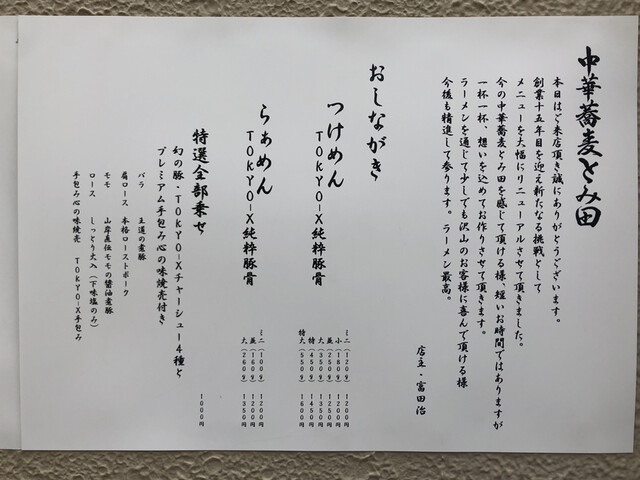 中華蕎麦とみ田
本日はご来店頂き誠にありがとうございます。
創業十五年目を迎え新たなる挑戦として
メニューを大幅にリニューアルさせて頂きました。
今の中華蕎麦とみ田を感じて頂ける様、短いお時間ではありますが
一杯一杯、想いを込めてお作りさせて頂きます。
ラーメンを通じて少しでも沢山のお客様に喜んで頂ける様
今後も精進して参ります。ラーメン最高。
店主・富田治
おしながき
つけめん
TOKYO-X純粋豚骨
ミニ(120g) 1200円
小(190g) 1200円
並(250g) 1250円
大(350g) 1350円
特(450g) 1450円
特大(550g) 1600円
らぁめん
TOKYO-X純粋豚骨
ミニ(100g) 1200円
並(160g) 1200円
大(260g) 1350円
特選全部乗せ
幻の豚・TOKYO-Xチャーシュー4種と
プレミアム手包み心の味焼売付き
1000円
バラ 王道の煮豚
肩ロース 本格ローストポーク
モモ 山岸直伝モモの醤油煮豚
ロース しっとり火入(下味塩のみ)
手包み心の味焼売 TOKYO-X手包み